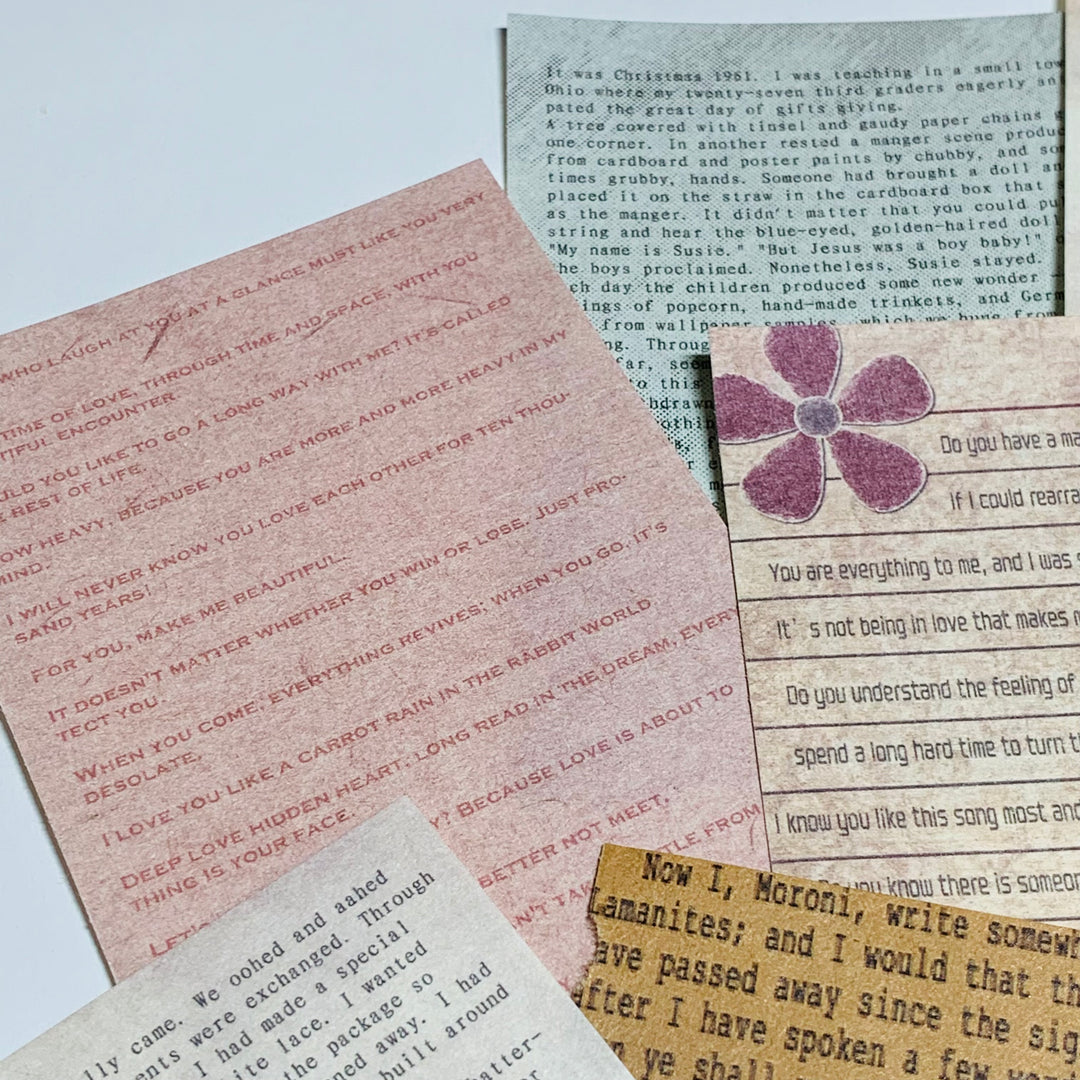 It was Christmas 1961. I was teaching in a small
Ohio where my twenty-seven third graders eagerly
pated the great day of gifts giving.
A tree covered with tinsel and gaudy paper chains
one corner. In another rested a manger scene
from cardboard and poster paints by chubby, and
times grubby, hands. Someone had brought a doll
placed it on the straw in the cardboard box that
as the manger. It didn't matter that you could
string and hear the blue-eyed, golden-haired
"My name is Susie." "But Jesus was a boy baby!"
he boys proclaimed. Nonetheless, Susie stayed.
day the children produced some new wonder
ings of popcorn, hand-made trinkets, and
from wallpaper samples, which we hung from
to this
WHO LAUGH AT YOU AT A GLANCE MUST LIKE YOU VERY
TIME OF LOVE, THROUGH TIME AND SPACE, WITH YOU
ENCOUNTER
YOU LIKE TO GO A LONG WAY WITH ME? IT'S CALLED
REST OF LIFE.
HEAVY, BECAUSE YOU ARE MORE AND MORE HEAVY IN MY
MIND.
I WILL NEVER KNOW YOU LOVE EACH OTHER FOR TEN THOU-
SAND YEARS!
FOR YOU, MAKE ME BEAUTIFUL..
IT DOESN'T MATTER WHETHER YOU WIN OR LOSE. JUST PRO-
TECT YOU.
WHEN YOU COME, EVERYTHING REVIVES; WHEN YOU GO, IT'S
DESOLATE.
I LOVE YOU LIKE A CARROT RAIN IN THE RABBIT WORLD
DEEP LOVE HIDDEN HEART; LONG READ IN THE DREAM, EVERY
THING IS YOUR FACE.
? BECAUSE LOVE IS ABOUT TO
BETTER NOT MEET,
FROM
Do you have a
If I could
You are everything to me, and I was
It's not being in love that makes
Do you understand the feeling of
spend a long hard time to turn
I know you like this song most and
you know there is
came. We oohed and aahed
were exchanged. Through
I had made a special
lace. I wanted
the package so
away. I had
built around
Now I, Moroni, write
Lamanites; and I would that
passed away since the
after I have spoken a few
ye shall